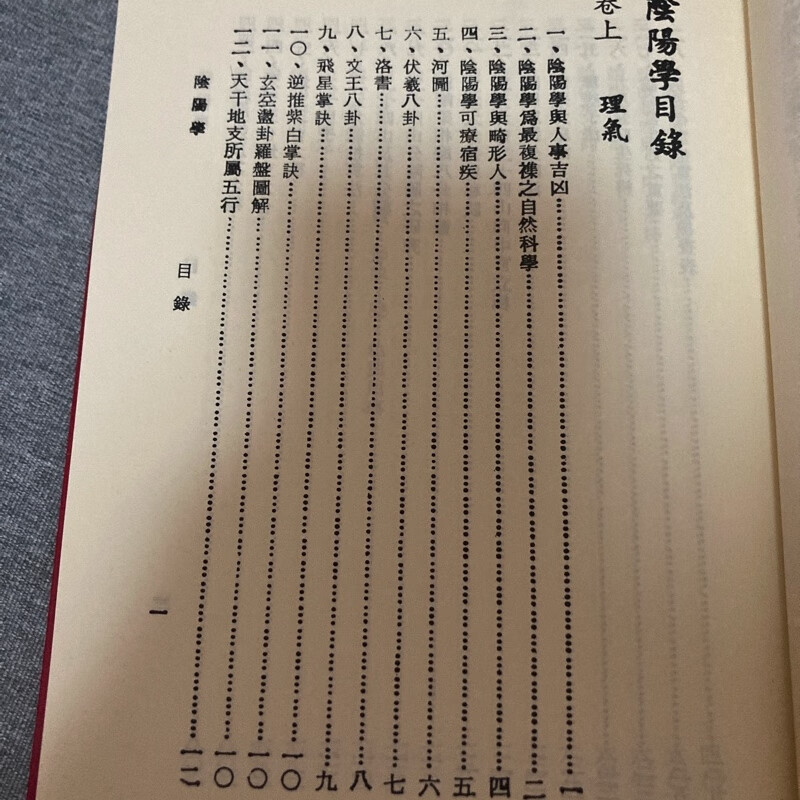 陰陽學目錄
卷上 理氣
一、陰陽學與人事吉凶……一
二、陰陽學為最複襍之自然科學……二
三、陰陽學與畸形人……四
四、陰陽學可療宿疾……五
五、河圖……六
六、伏羲八卦……七
七、洛書……八
八、文王八卦……九
九、飛星掌訣……一〇
一〇、逆推紫白掌訣……一〇
一一、玄空盪卦羅盤圖解……一〇
一二、天干地支所屬五行……一二
陰陽學 目錄 一